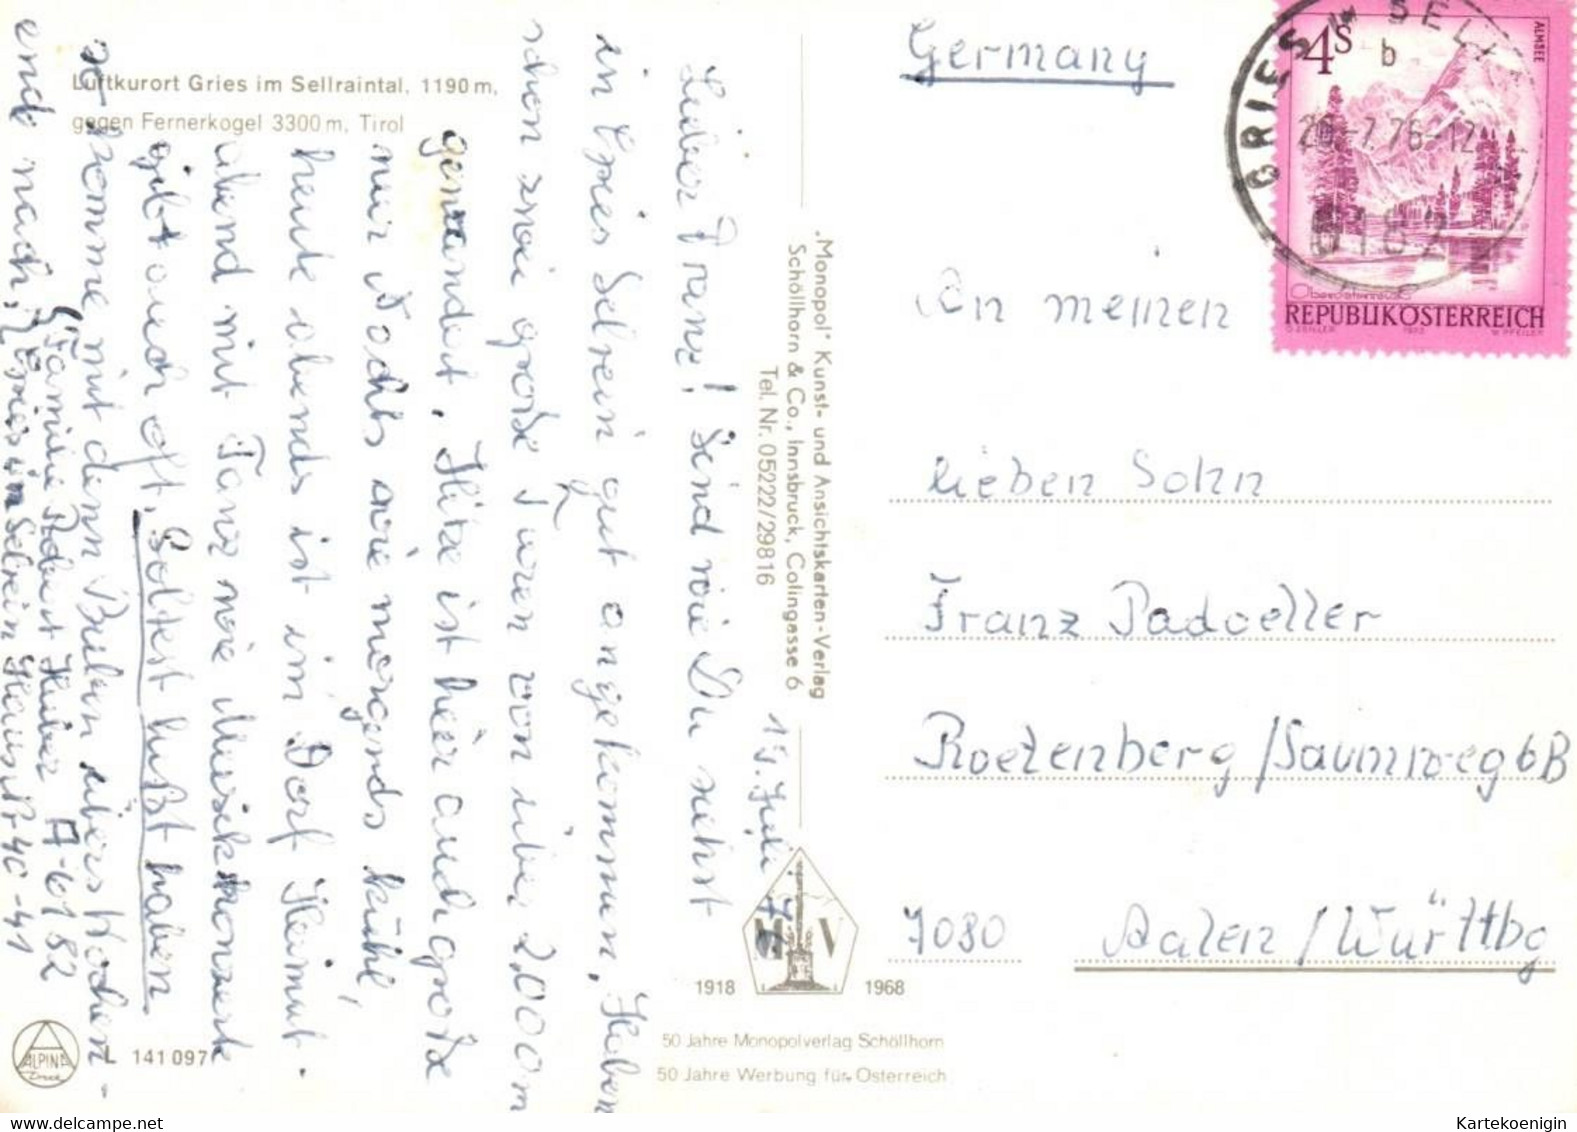 Luftkurort Gries im Sellraintal, 1190 m,
gegen Fernerkogel 3300 m, Tirol
Lieber Franz! Seind wie Du siehst
in Gries Selrein gut angekommen, Haben
schon zwei große Turen von über 2,000 m
gewandert. Hitze ist hier auch große
nur Nachts wie morgends kühl,
heute abends ist im Dorf Heimat-
abend mit Tanz wie Musikkonzert
gibt auch oft. Soltest lust haben
so komme mit dem Bulen übers Wochen-
ende nach. Gries in Selrein Hausnr 40-41
Familie Huber A-6182
15. Juli
"Monopol" Kunst- und Ansichtskarten-Verlag
Schöllhorn & Co., Innsbruck, Colingasse 6
Tel. Nr. 05222/29816
M V
1918 1968
50 Jahre Monopolverlag Schöllhorn
50 Jahre Werbung für Österreich
ALPINA
Druck
141 097
Germany
An meinen
lieben Sohn
Franz Padoeller
Roetenberg/Saumweg 6B
7080 Aalen/Württbg
4S
ALMSEE
GRIES SELL
b
-7.76-12
6182
Oberösterreich
REPUBLIK ÖSTERREICH
Kartekoenigin